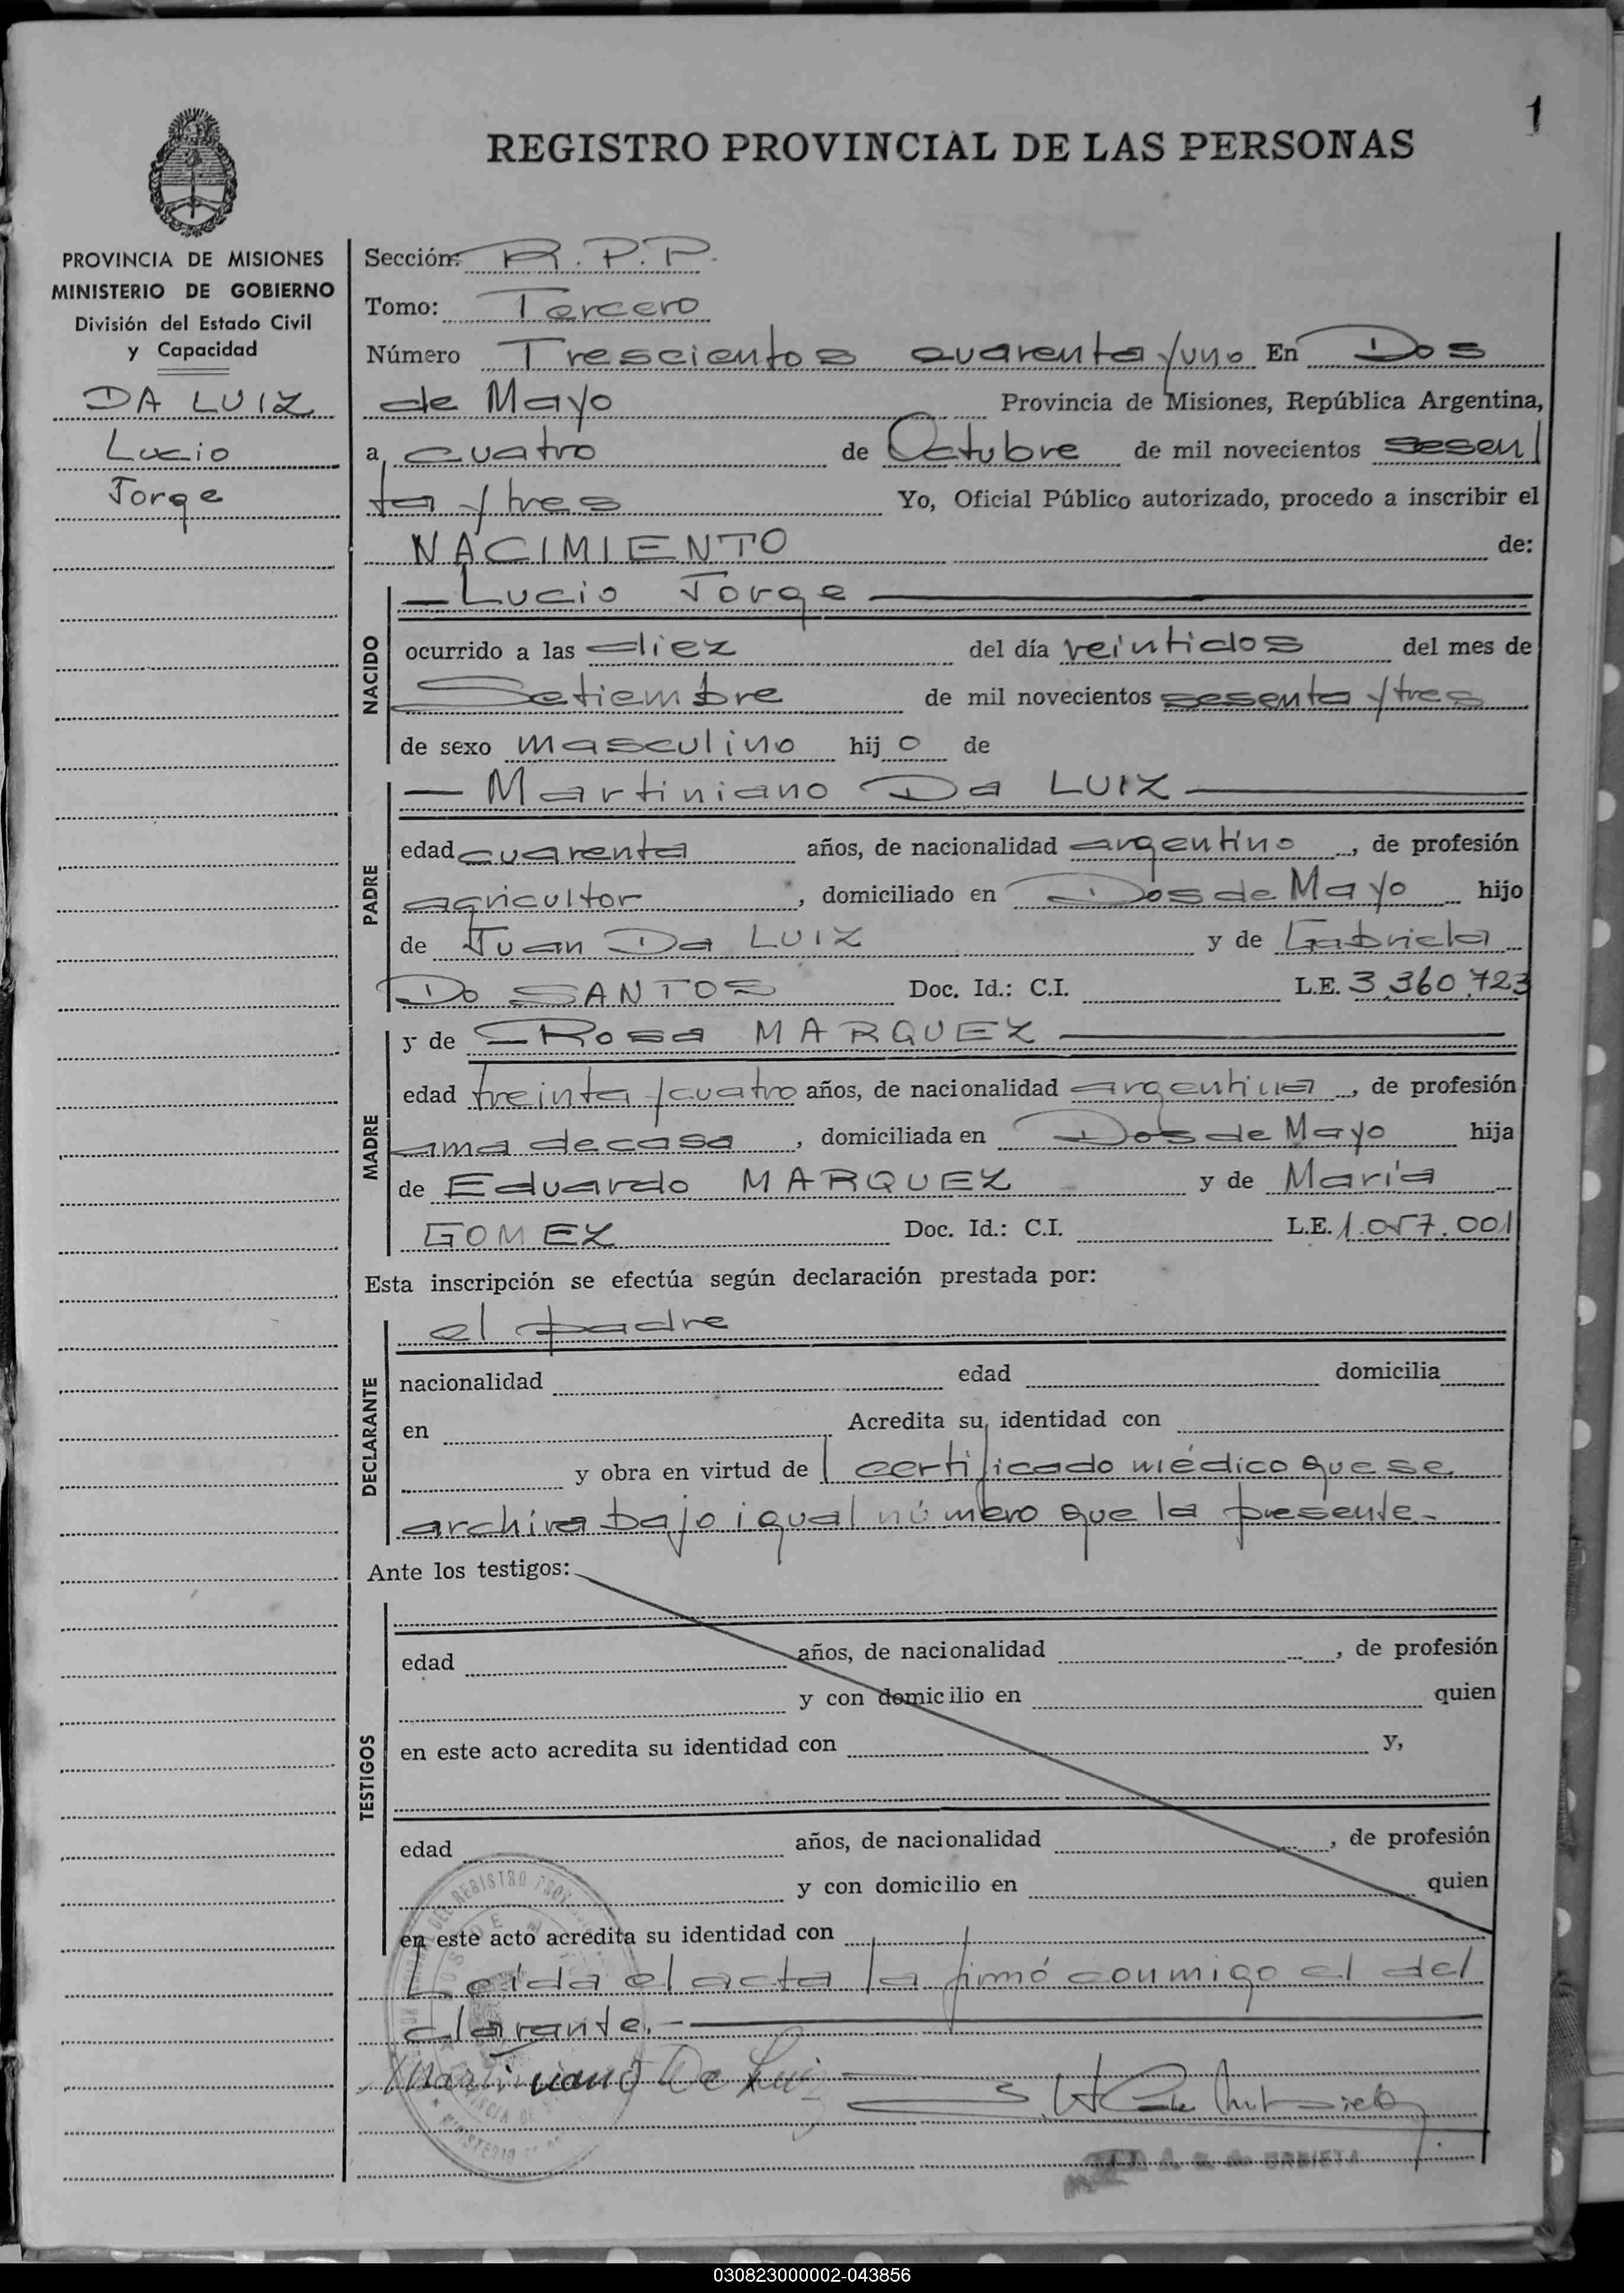 1
REGISTRO PROVINCIAL DE LAS PERSONAS
PROVINCIA DE MISIONES
MINISTERIO DE GOBIERNO
División del Estado Civil
y Capacidad
DA LUIZ
Lucio
Jorge
Sección: R.P.P.
Tomo: Tercero
Número Trescientos cuarenta y uno En Dos
de Mayo Provincia de Misiones, República Argentina,
a cuatro de Octubre de mil novecientos sesen
ta y tres Yo, Oficial Público autorizado, procedo a inscribir el
NACIMIENTO de:
NACIDO
— Lucio Jorge —
ocurrido a las diez del día veintidos del mes de
Setiembre de mil novecientos sesenta y tres
de sexo masculino hijo de
PADRE
— Martiniano Da LUIZ —
edad cuarenta años, de nacionalidad argentino, de profesión
agricultor, domiciliado en Dos de Mayo hijo
de Juan Da LUIZ y de Gabriela
Do SANTOS Doc. Id.: C.I. L.E. 3.360.723
MADRE
y de — Rosa MARQUEZ —
edad treinta y cuatro años, de nacionalidad argentina, de profesión
ama de casa, domiciliada en Dos de Mayo hija
de Eduardo MARQUEZ y de María
GOMEZ Doc. Id.: C.I. L.E. 1.057.001
Esta inscripción se efectúa según declaración prestada por:
DECLARANTE
el padre
nacionalidad edad domicilia
en Acredita su identidad con
y obra en virtud de certificado médico que se
archiva bajo igual número que la presente.-
Ante los testigos:
TESTIGOS
edad años, de nacionalidad , de profesión
y con domicilio en quien
en este acto acredita su identidad con y,
edad años, de nacionalidad , de profesión
y con domicilio en quien
en este acto acredita su identidad con
Leída el acta la firmó conmigo el del
clarante.-
Martiniano Da Luiz
DEL REGISTRO
URBIETA
030823000002-043856